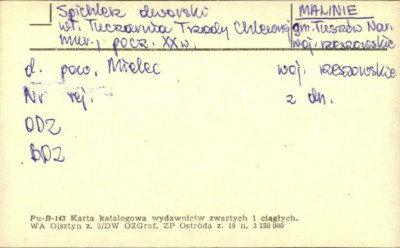 Spichlerz dworski MALINIE
wł. Tuczarnia Trzody Chlewnej gm. Tuszów Nar.
mur., pocz. XX w. woj. rzeszowskie
d. pow. Mielec woj. rzeszowskie
Nr rej. z dn.
ODZ
BDZ
Pu-B-143 Karta katalogowa wydawnictw zwartych i ciągłych.
WA Olsztyn z. 3/DW OZGraf. ZP Ostróda z. 19 n. 3 150 000